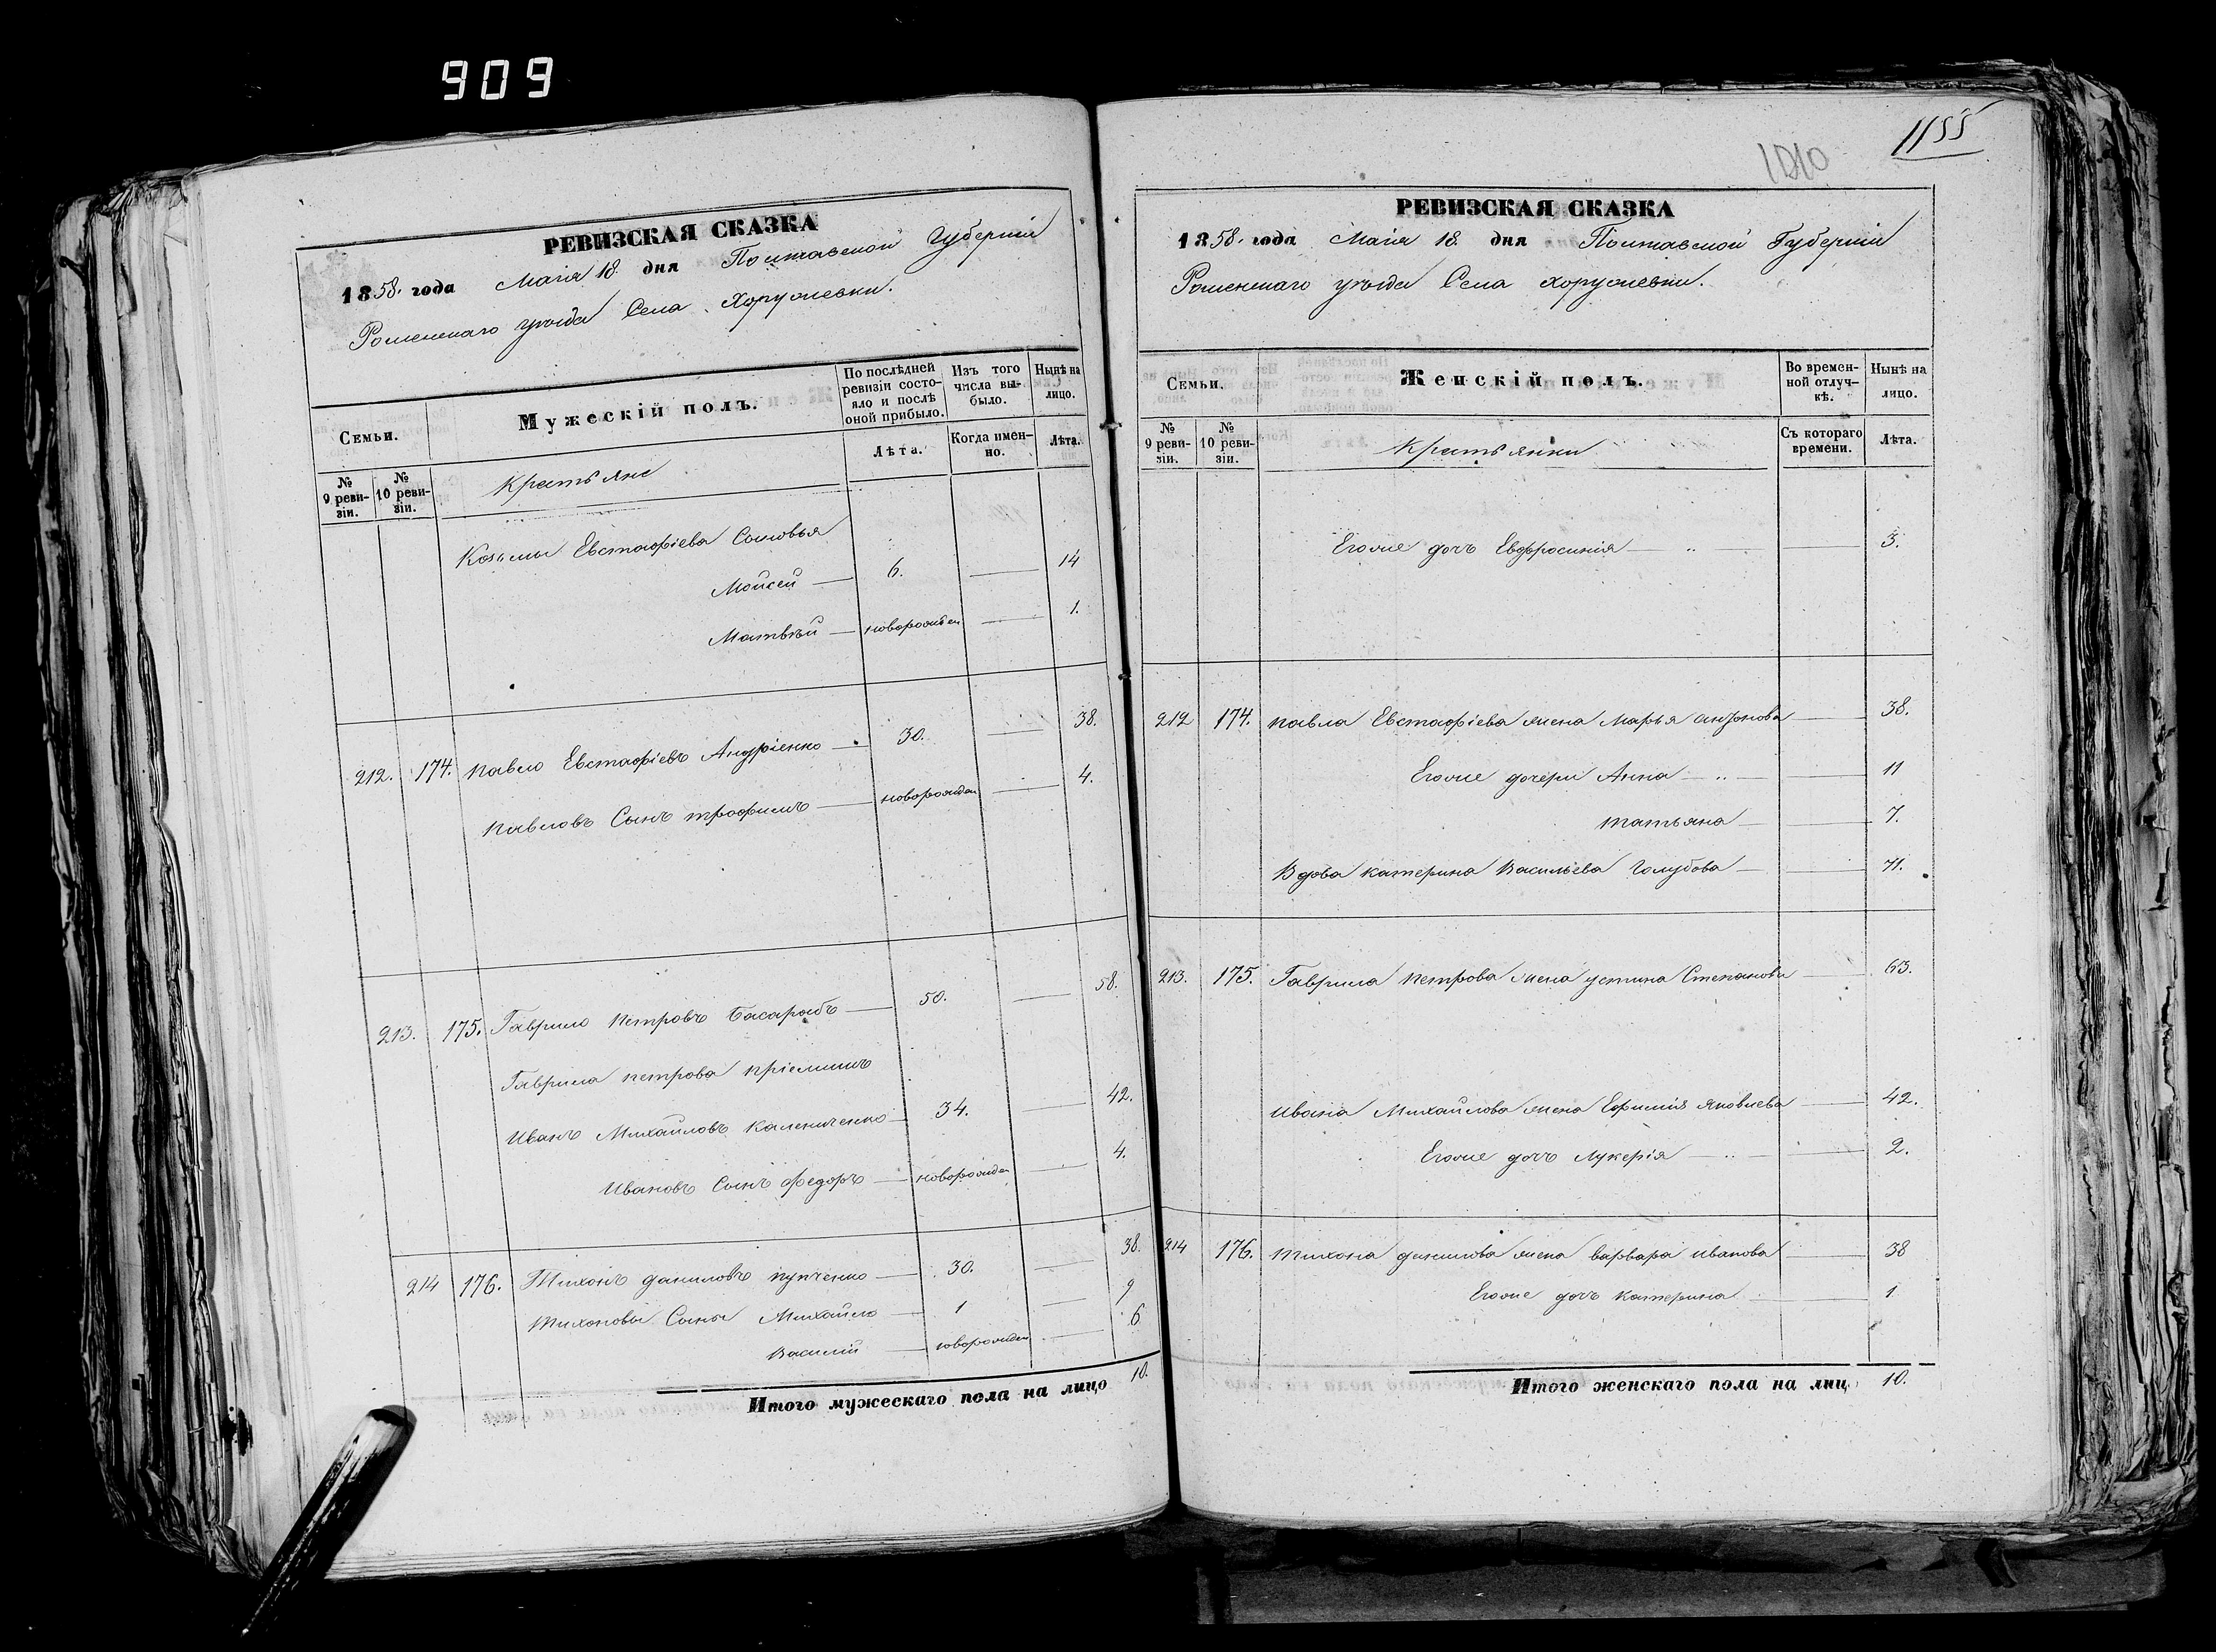 909
РЕВИЗСКАЯ СКАЗКА
1858. года Маія 18. дня Полтавской Губерніи
Роменскаго уѣзда Села Хоружевки.
Семьи.
Мужескій полъ.
По послѣдней ревизіи состояло и послѣ оной прибыло.
Изъ того числа выбыло.
Нынѣ на лицо.
№ 9 ревизіи.
№ 10 ревизіи.
Крестьяне
Лѣта.
Когда именно.
Лѣта.
Козьмы Евстафіева Сыновья
Мойсей — 6. — 14
Матвѣй — новорожден — 1.
212. 174. Павло Евстафіевъ Андріенко — 30. — 38.
Павловъ Сынъ трофимъ — новорожден — 4.
213. 175. Гаврило Петровъ Басарабъ — 50. — 58.
Гаврила Петрова пріемышъ
Иванъ Михайловъ Калениченко — 34. — 42.
Ивановъ Сынъ федоръ — новорожден — 4.
214 176. Тихонъ даниловъ пупченко — 30. — 38.
Тихоновы Сыны Михайло — 1 — 9
Василій — новорожден — 6
Итого мужескаго пола на лицо 10.
1155
1010
РЕВИЗСКАЯ СКАЗКА
1858. года Маія 18. дня Полтавской Губерніи
Роменскаго уѣзда Села Хоружевки.
Семьи.
Женскій полъ.
Во временной отлучкѣ.
Нынѣ на лицо.
№ 9 ревизіи.
№ 10 ревизіи.
Крестьянки
Съ котораго времени.
Лѣта.
Егоже дочь Евфросинія — „ — 3.
212 174. Павла Евстафіева жена Марья Антонова — 38.
Егоже дочери Анна — „ — 11
татьяна — 7.
Вдова катерина Васильева Голубова — 71.
213. 175. Гаврила Петрова жена устина Степанова — 63.
Ивана Михайлова жена Ефимія Яковлева — 42.
Егоже дочь Лукерія — „ — 2.
214 176. Тихона данилова жена варвара иванова — 38
Егоже дочь Катерина — 1
Итого женскаго пола на лиц 10.